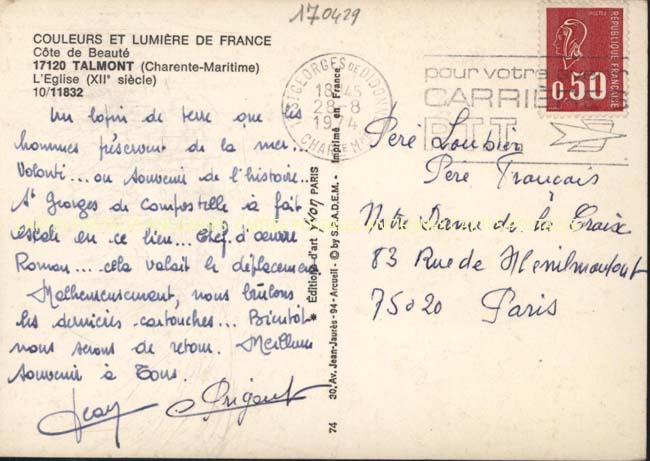 170429
COULEURS ET LUMIÈRE DE FRANCE
Côte de Beauté
17120 TALMONT (Charente-Maritime)
L'Eglise (XIIᵉ siècle)
10/11832
Un lopin de terre que les
hommes préservent de la mer...
Volonté... ou Souvenir de l'histoire...
St Georges de Compostelle a fait
escale en ce lieu... Chef d'œuvre
Roman... cela valait le déplacement
Malheureusement, nous brûlons
les dernières cartouches... Bientôt
nous serons de retour. Meilleur
souvenir à Tous.
Jean
Editions d'art Yvon PARIS
30, Av. Jean-Jaurès - 94 - Arcueil - © by S.P.A.D.E.M. - Imprimé en France
74
ST GEORGES DE DIDONNE
18 H 45
28 - 8
1974
pour votre
CARRIÈRE
P.T.T.
REPUBLIQUE FRANÇAISE
0,50
Père Loubier
Père Français
Notre Dame de la Croix
83 Rue de Ménilmontant
75020 Paris